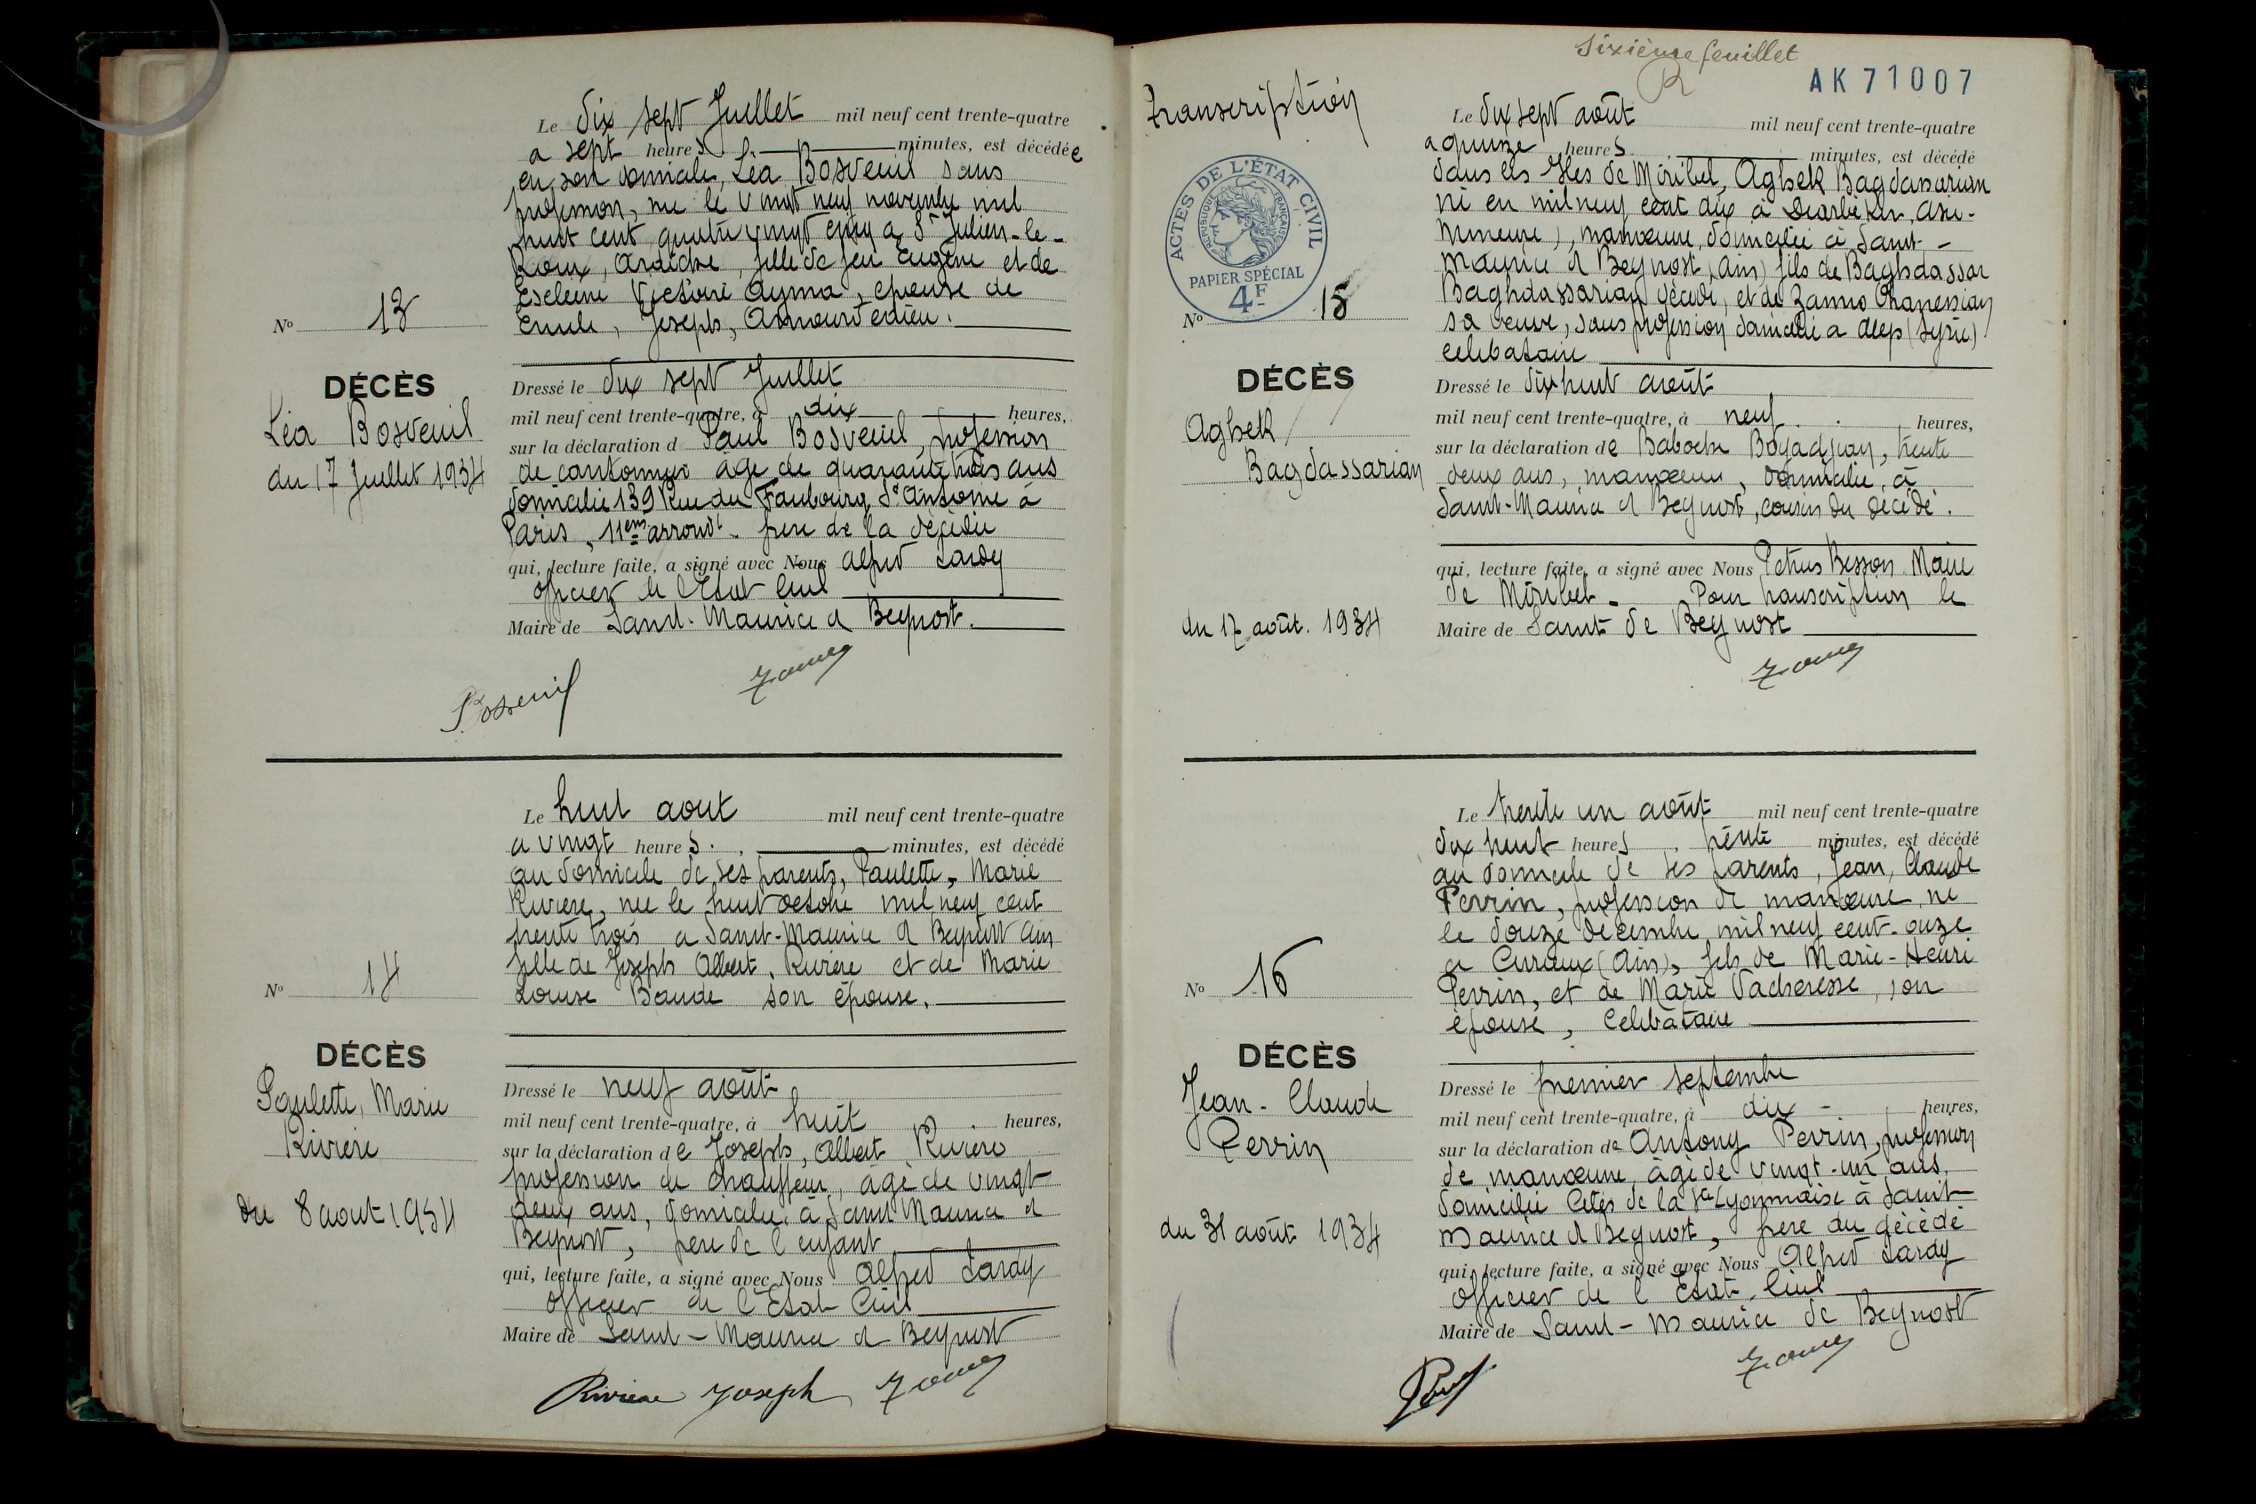 Le dix sept Juillet mil neuf cent trente-quatre
a sept heures minutes, est décédée
en son domicile, Léa Bosveuil sans
profession, née le vingt neuf novembre mil
huit cent quatre vingt cinq a St Julien-le-
Roux, Ardèche, fille de feu Eugène et de
Victoire Ayma, épouse de
Emile, Joseph,
No 13
DÉCÈS
Léa Bosveuil
du 17 Juillet 1934
Dressé le dix sept Juillet
mil neuf cent trente-quatre, à dix heures,
sur la déclaration d Paul Bosveuil, profession
de cantonnier âgé de quarante trois ans
domicilié 139 Rue du Faubourg St Antoine à
Paris, 11em arrondt. frère de la décédée
qui, lecture faite, a signé avec Nous Alfred Lardy
officier de l'Etat Civil
Maire de Saint-Maurice d Beynost.
Le huit aout mil neuf cent trente-quatre
a vingt heures. minutes, est décédé
au domicile de ses parents, Paulette, Marie
Rivière, née le huit octobre mil neuf cent
trente trois a Saint-Maurice d Beynost Ain
fille de Joseph Albert, Rivière et de Marie
Louise Baude son épouse.
No 14
DÉCÈS
Paulette, Marie
Rivière
du 8 aout 1934
Dressé le neuf août
mil neuf cent trente-quatre, à huit heures,
sur la déclaration de Joseph, Albert Rivière
profession de chauffeur, âgé de vingt
deux ans, domicilié à Saint Maurice d
Beynost, père de l'enfant
qui, lecture faite, a signé avec Nous Alfred Lardy
officier de l'Etat Civil
Maire de Saint-Maurice d Beynost
Rivière Joseph
Sixième feuillet
AK71007
transcription
ACTES DE L'ÉTAT CIVIL
RÉPUBLIQUE FRANÇAISE
PAPIER SPÉCIAL
4F
Le dix sept août mil neuf cent trente-quatre
a quinze heures minutes, est décédé
dans les Iles de Miribel, Aghek Bagdassarian
né en mil neuf cent dix à Diarbékir, Asie-
Mineure), manœuvre, domicilié à Saint-
Maurice d Beynost, (Ain) fils de Baghdassar
Baghdassarian décédé, et de Zanno Ohanessian
sa veuve, sans profession domicilié a Alep (Syrie)
célibataire
No 15
DÉCÈS
Aghek
Bagdassarian
du 17 août. 1934
Dressé le dix huit août
mil neuf cent trente-quatre, à neuf heures,
sur la déclaration de Boyadjian, trente
deux ans, manœuvre, domicilié, à
Saint-Maurice d Beynost, cousin du décédé.
qui, lecture faite, a signé avec Nous Petrus Besson Maire
de Miribel. Pour transcription le
Maire de Saint de Beynost
Le trente un août mil neuf cent trente-quatre
dix huit heures trente minutes, est décédé
au domicile de ses parents, Jean, Claude
Perrin, profession de manœuvre, né
le douze décembre mil neuf cent onze
a (Ain), fils de Marie-Henri
Perrin, et de Marie Vacheresse, son
épouse, Célibataire
No 16
DÉCÈS
Jean-Claude
Perrin
du 31 août 1934
Dressé le premier septembre
mil neuf cent trente-quatre, à dix heures,
sur la déclaration de Antony Perrin, profession
de manœuvre, âgé de vingt-un ans,
domicilié Cités de la Sté Lyonnaise à Saint-
Maurice d Beynost, frère du décédé
qui, lecture faite, a signé avec Nous Alfred Lardy
officier de l'Etat-Civil
Maire de Saint-Maurice de Beynost